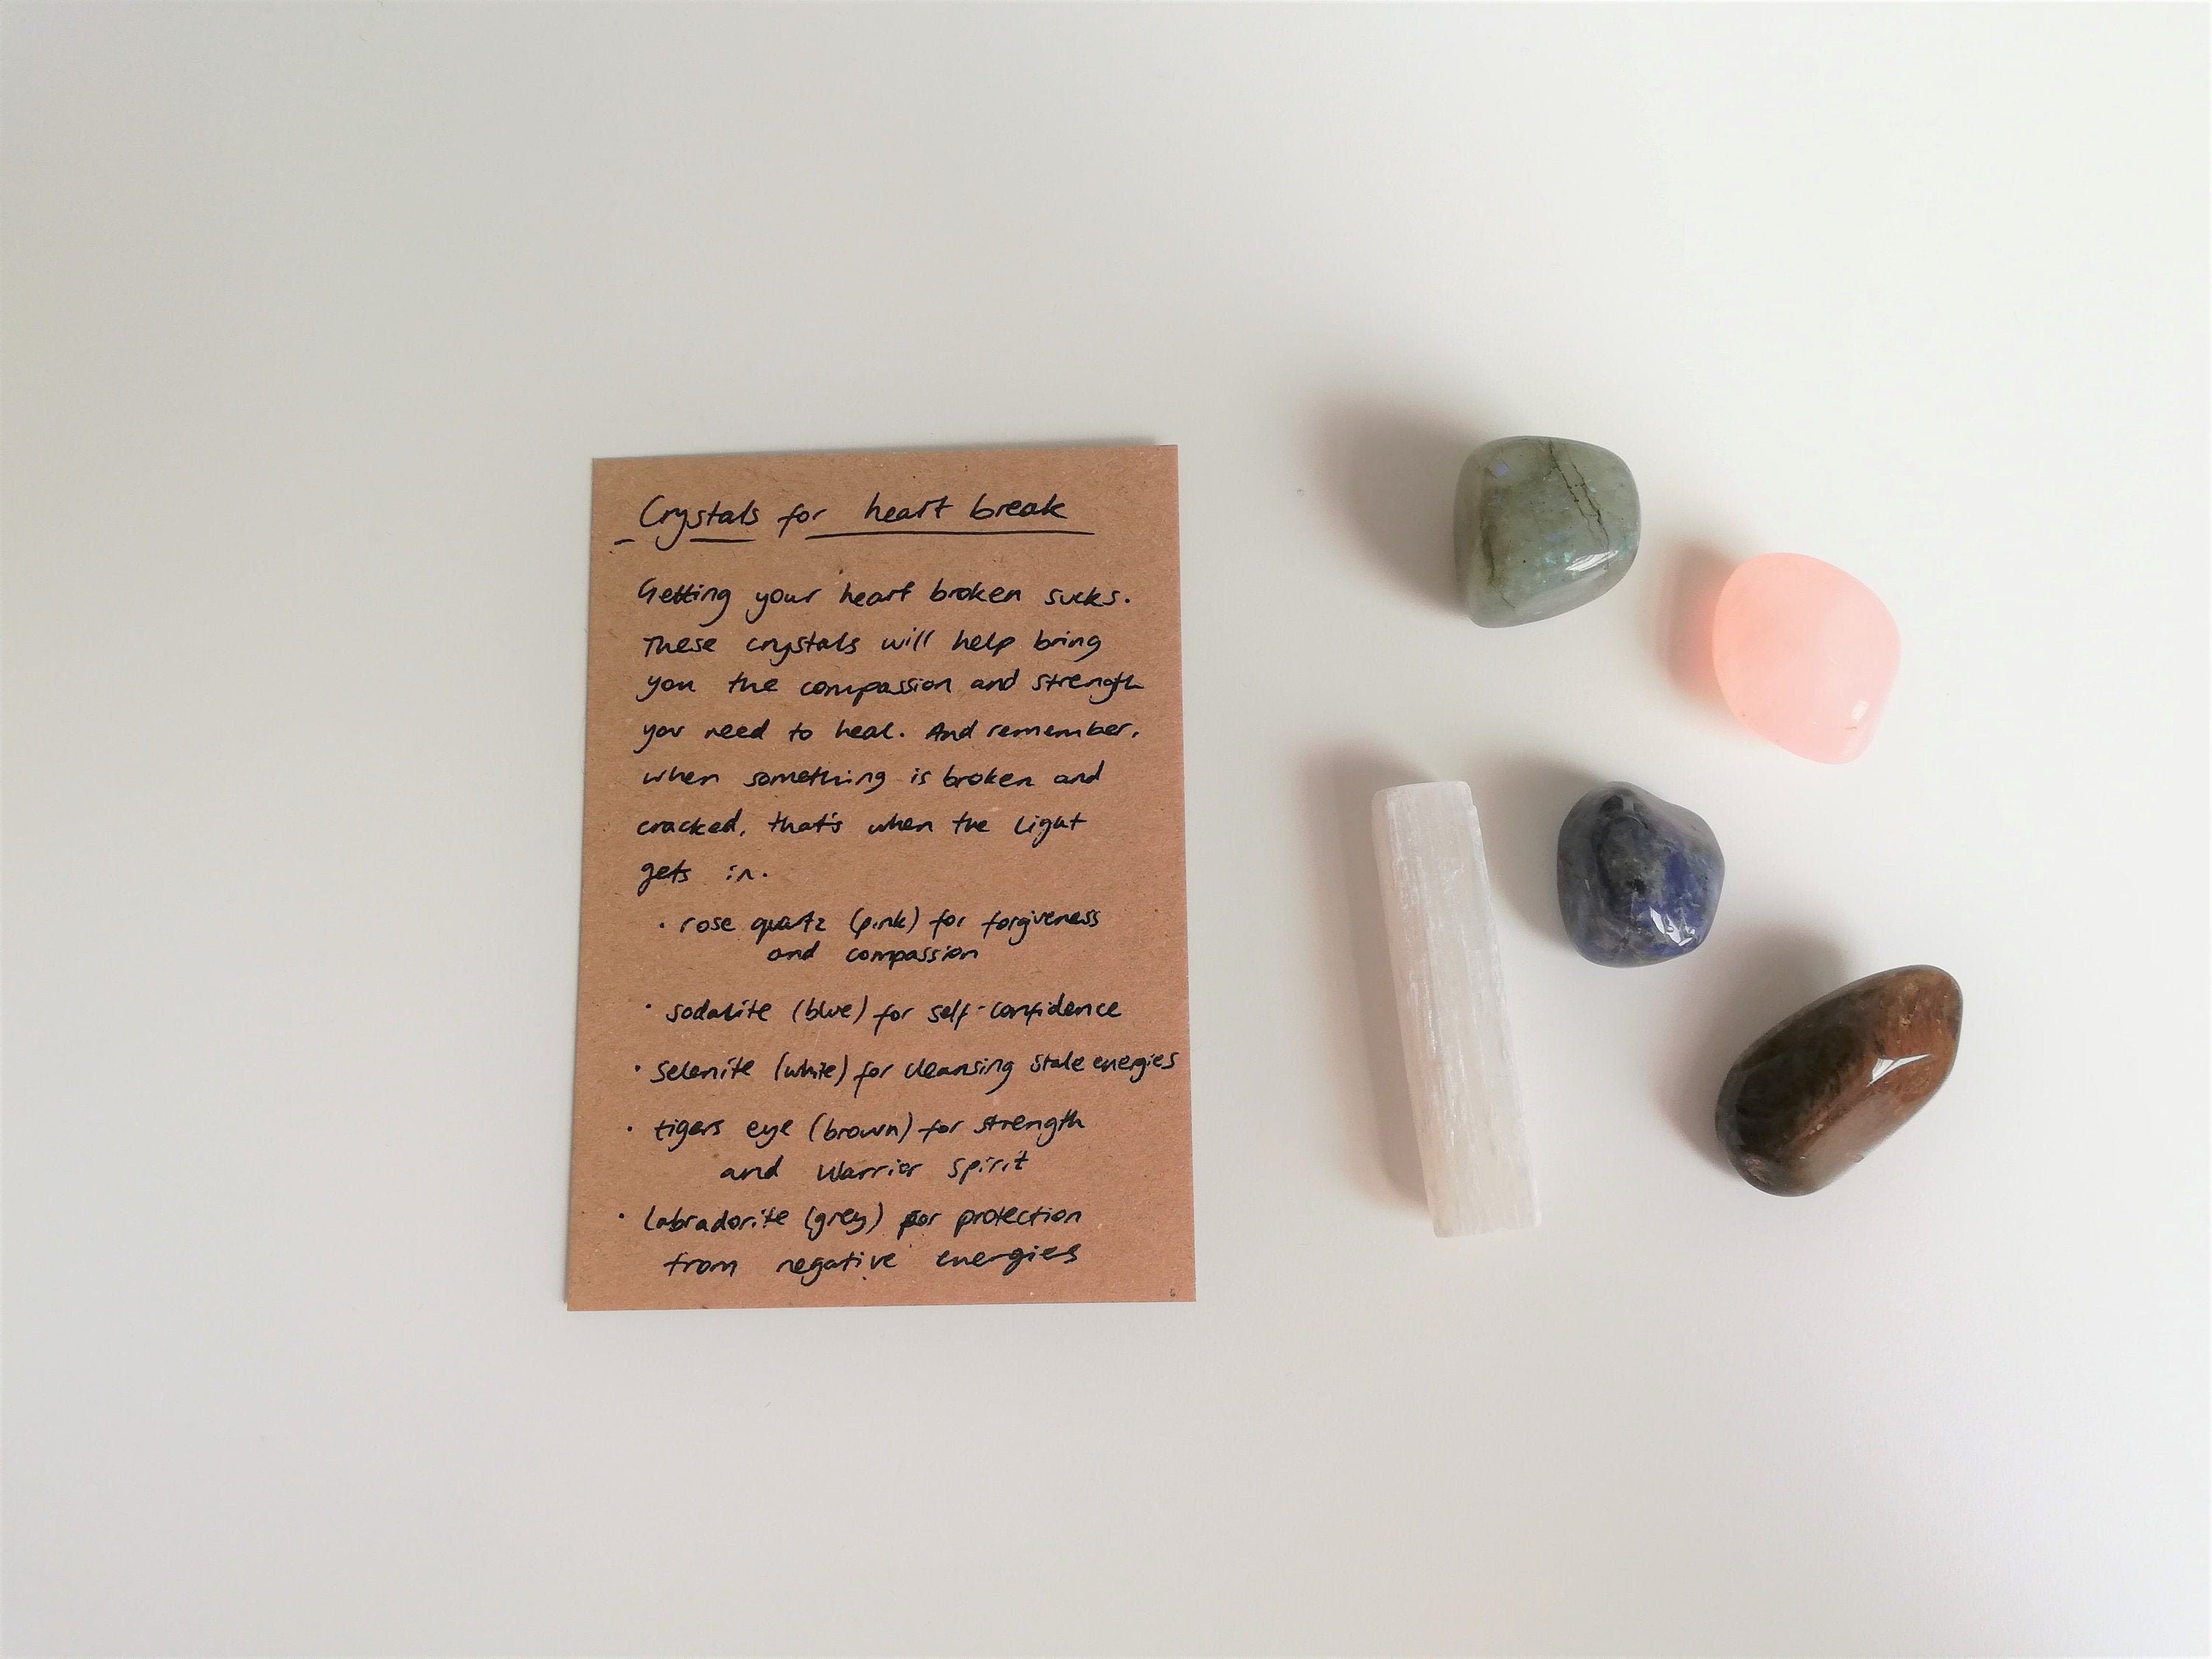 Crystals for heart break
Getting your heart broken sucks.
These crystals will help bring
you the compassion and strength
you need to heal. And remember,
when something is broken and
cracked, that's when the light
gets in.
· rose quartz (pink) for forgiveness
and compassion
· sodalite (blue) for self-confidence
· selenite (white) for cleansing stale energies
· tigers eye (brown) for strength
and warrior spirit
· labradorite (grey) for protection
from negative energies